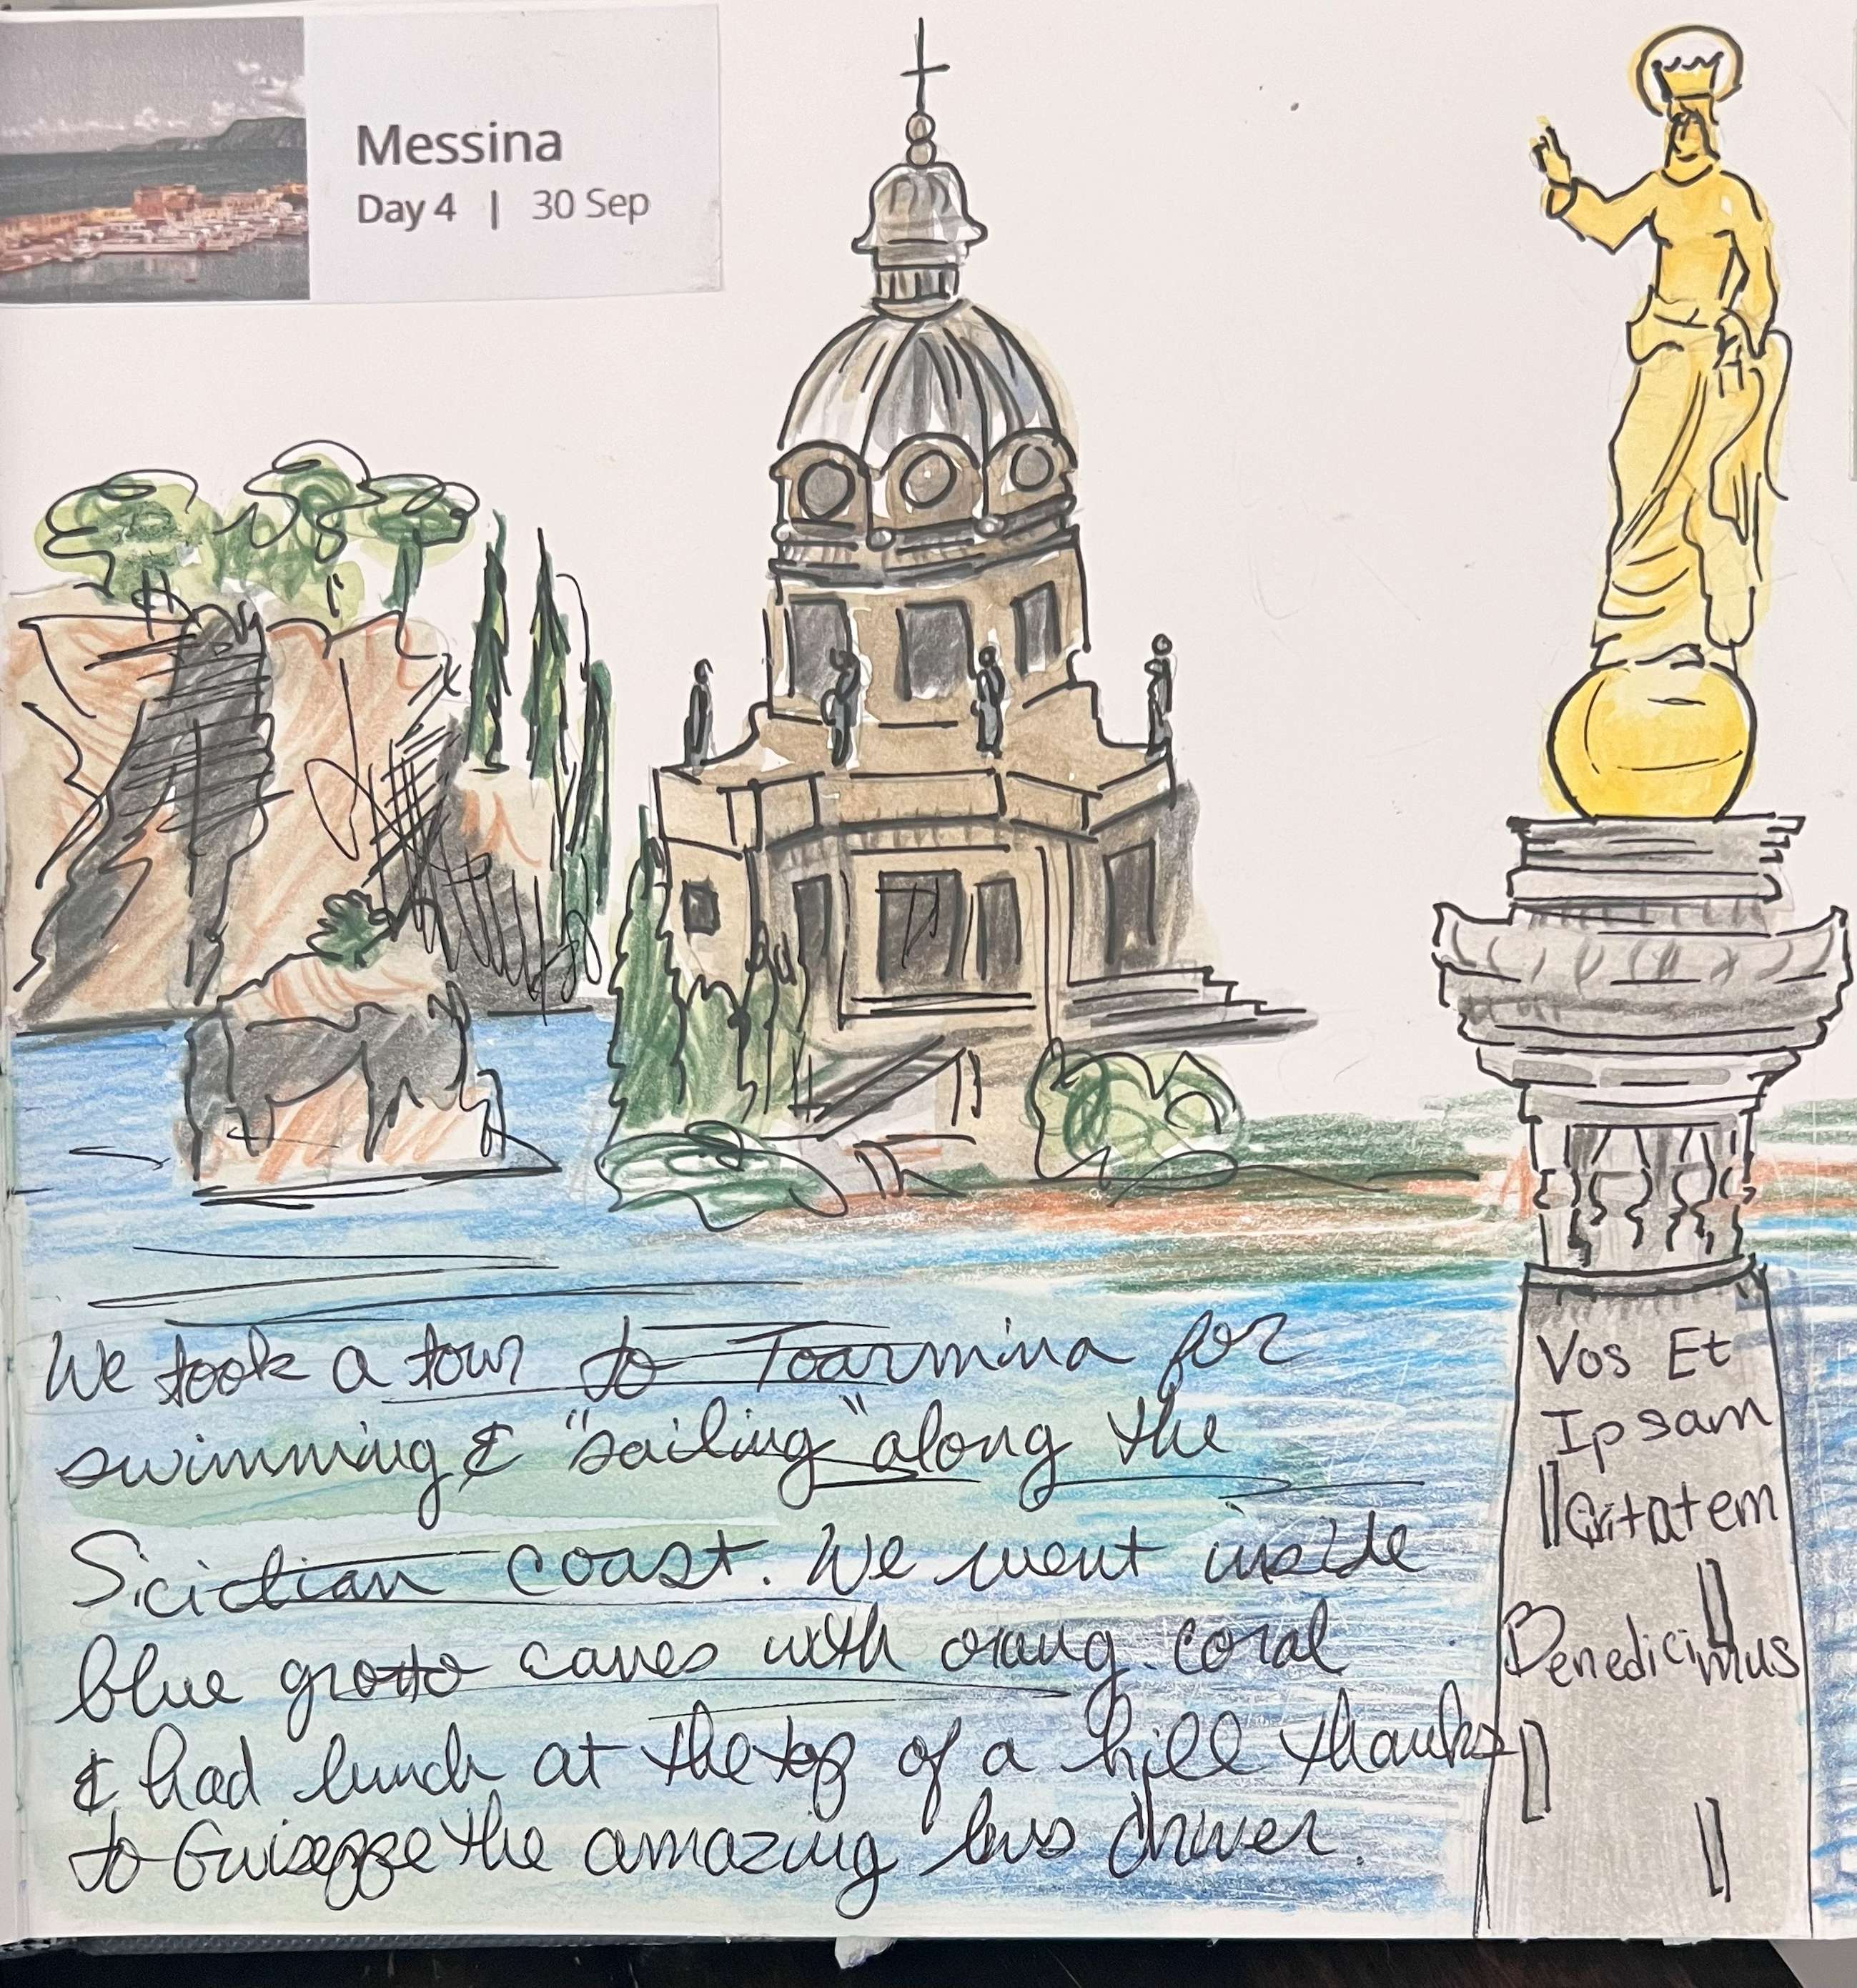 Messina
Day 4 | 30 Sep
We took a tour to Toarmina for
swimming & "sailing" along the
Sicilian coast. We went inside
blue grotto caves with orang. coral
& had lunch at the top of a hill thanks
to Guiseppe the amazing bus driver.
Vos Et
Ipsam
Citatem
Benedicimus